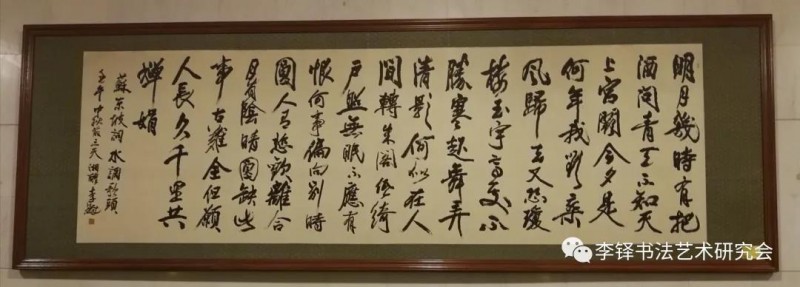 明月幾時有把
酒問青天不知天
上宮闕今夕是
何年我欲乘
風歸去又恐瓊
樓玉宇高處不
勝寒起舞弄
清影何似在人
間轉朱閣低綺
戶照無眠不應有
恨何事偏向別時
圓人有悲歡離合
月有陰晴圓缺此
事古難全但願
人長久千里共
嬋娟
蘇東坡詞水調歌頭
中秋三天湘醴李鐸
李铎书法艺术研究会